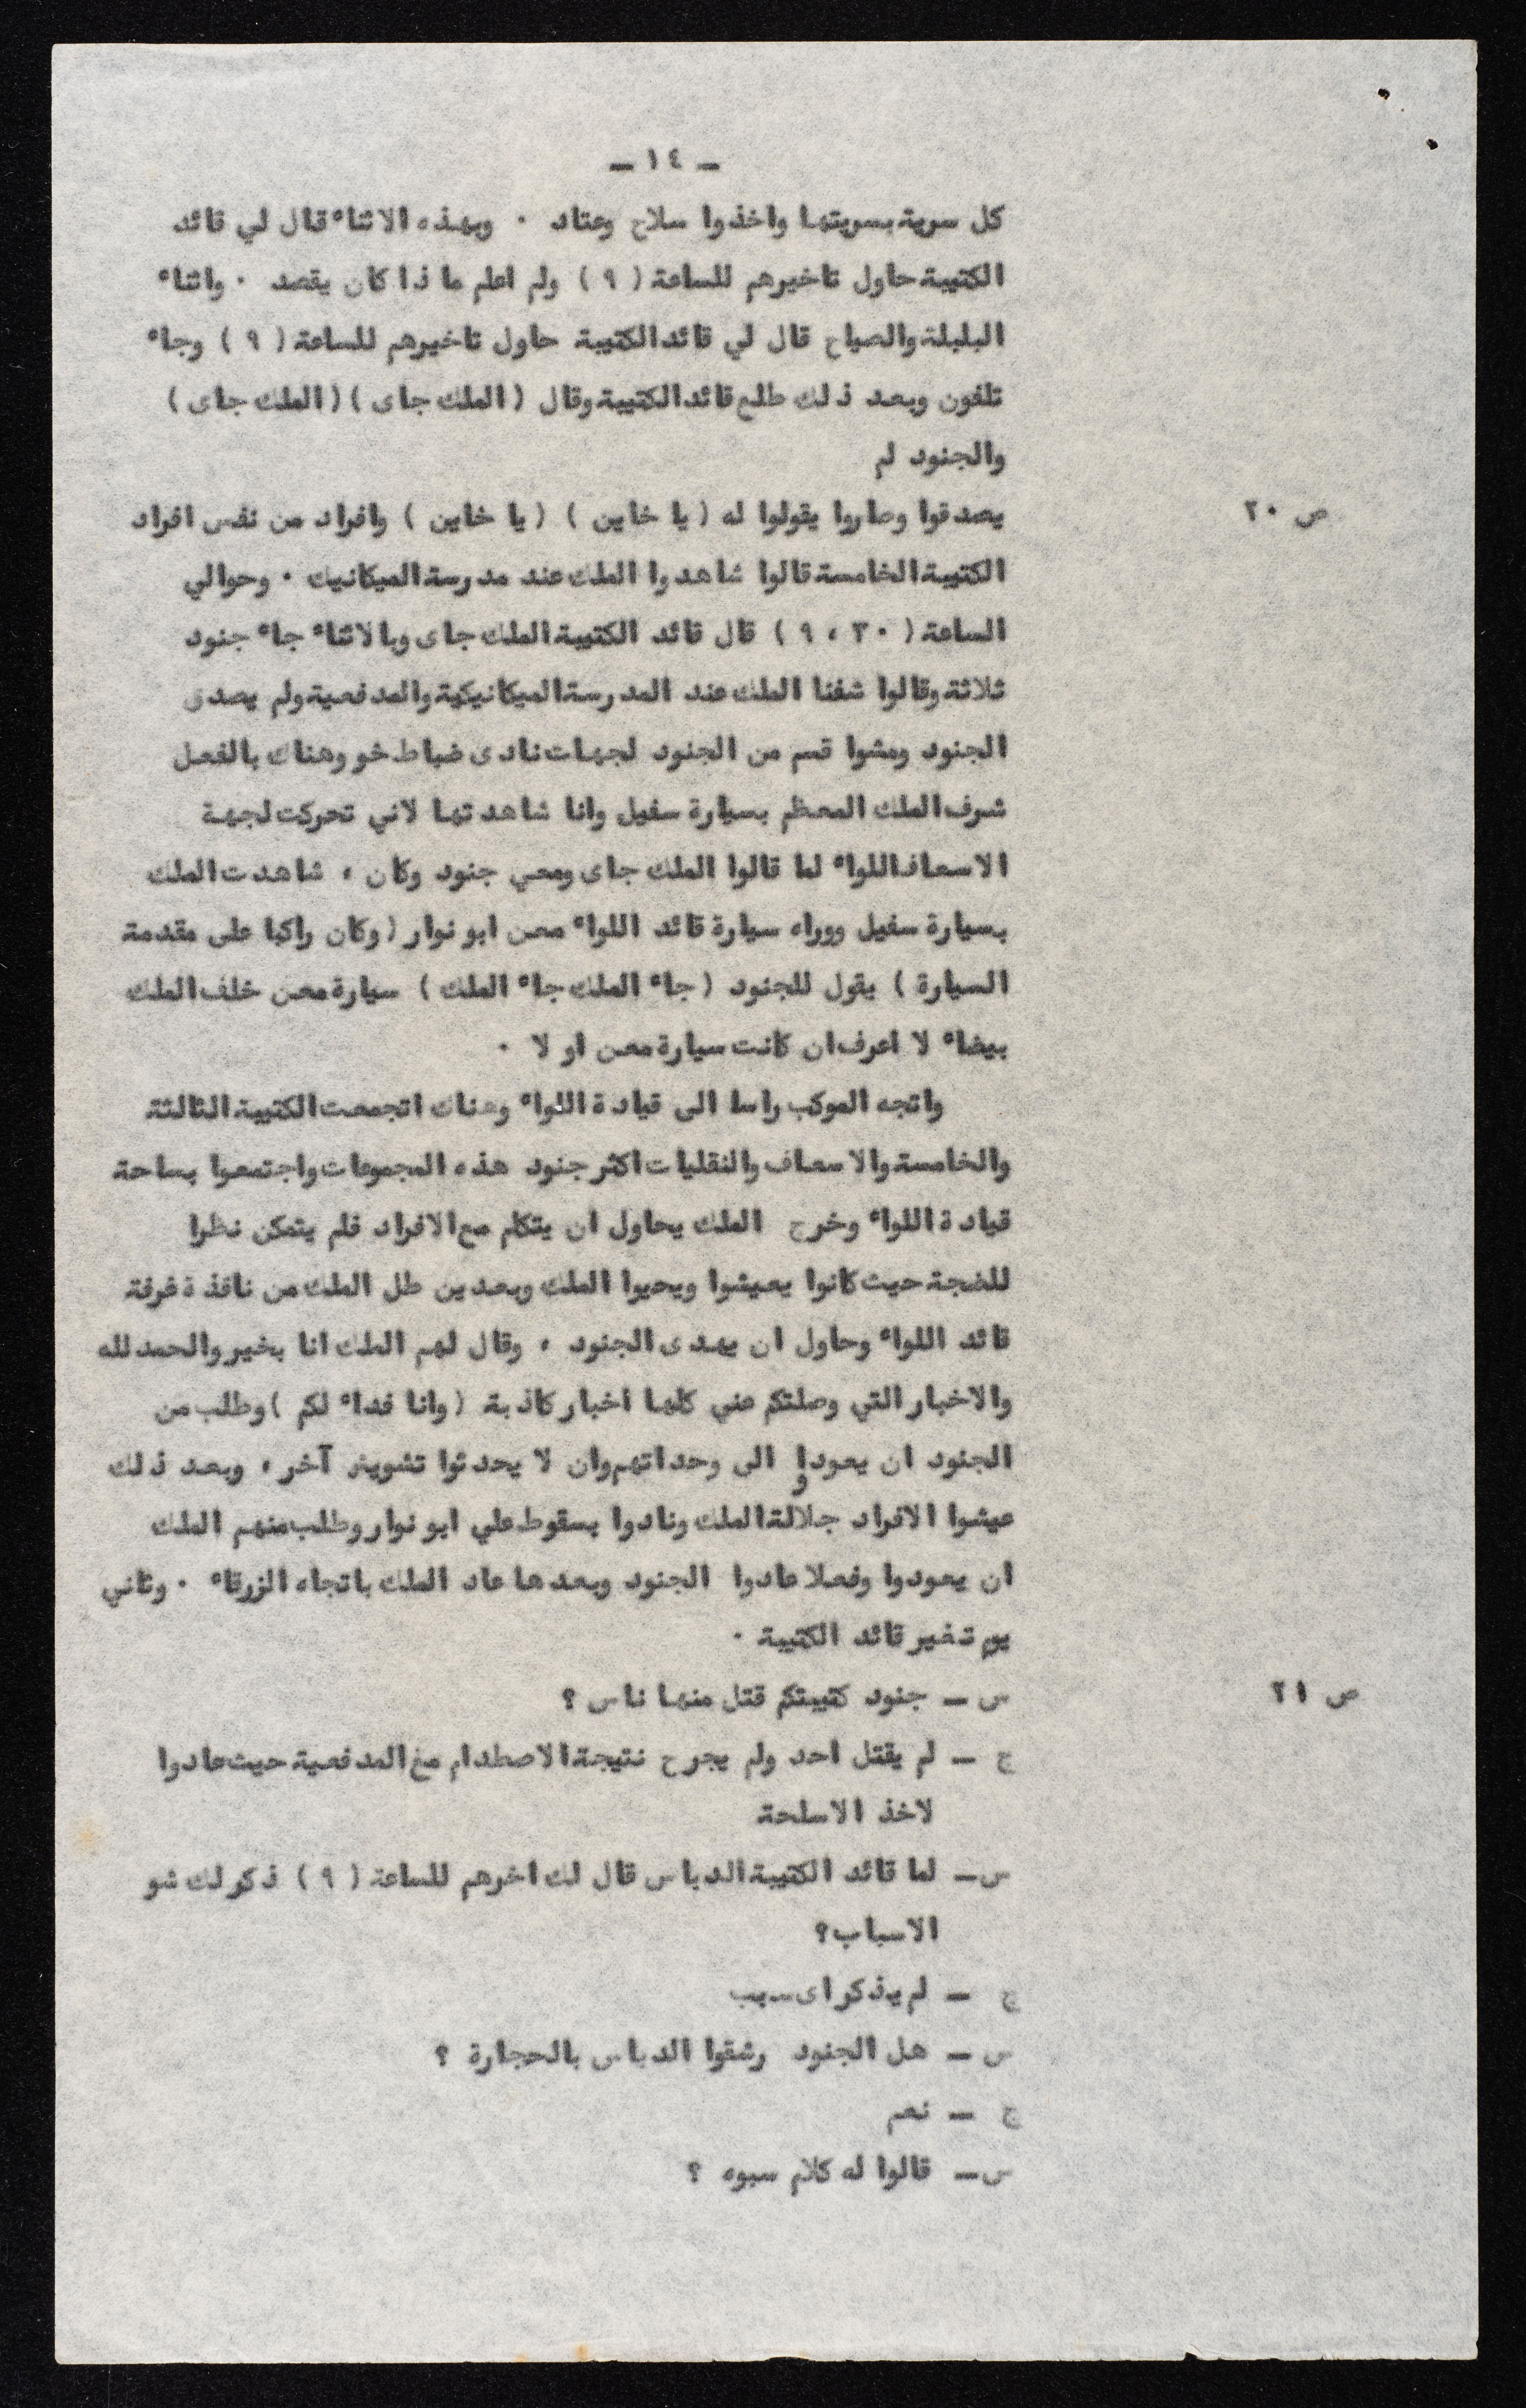 ـ ١٤ ـ
كل سرية بسريتها واخذوا سلاح وعتاد ٠ وبهذه الاثناء قال لي قائد
الكتيبة حاول تاخيرهم للساعة ( ٩ ) ولم اعلم ما ذا كان يقصد ٠ واثناء
البلبلة والصياح قال لي قائد الكتيبة حاول تاخيرهم للساعة ( ٩ ) وجاء
تلفون وبعد ذلك طلع قائد الكتيبة وقال ( الملك جاى ) ( الملك جاى )
والجنود لم
ص ٢٠ يصدقوا وصاروا يقولوا له ( يا خاين ) ( يا خاين ) وافراد من نفس افراد
الكتيبة الخامسة قالوا شاهدوا الملك عند مدرسة الميكانيك ٠ وحوالي
الساعة ( ٣٠ ، ٩ ) قال قائد الكتيبة الملك جاى وبالاثناء جاء جنود
ثلاثة وقالوا شفنا الملك عند المدرسة الميكانيكية والمدفعية ولم يصدق
الجنود ومشوا قسم من الجنود لجهات نادى ضباط خو وهناك بالفعل
شرف الملك المعظم بسيارة سفيل وانا شاهدتها لاني تحركت لجهة
الاسعاف اللواء لما قالوا الملك جاى ومعي جنود وكان ، شاهدت الملك
بسيارة سفيل ووراه سيارة قائد اللواء معن ابو نوار ( وكان راكبا على مقدمة
السيارة ) يقول للجنود ( جاء الملك جاء الملك ) سيارة معن خلف الملك
بيضاء لا اعرف ان كانت سيارة معن او لا ٠
واتجه الموكب راسا الى قيادة اللواء وهناك اتجمعت الكتيبة الثالثة
والخامسة والاسعاف والنقليات اكثر جنود هذه المجموعات واجتمعوا بساحة
قيادة اللواء وخرج الملك يحاول ان يتكلم مع الافراد فلم يتمكن نظرا
للضجة حيث كانوا يعيشوا ويحيوا الملك وبعدين طل الملك من نافذة غرفة
قائد اللواء وحاول ان يهدى الجنود ، وقال لهم الملك انا بخير والحمد لله
والاخبار التي وصلتكم عني كلها اخبار كاذبة ( وانا فداء لكم ) وطلب من
الجنود ان يعودوا الى وحداتهم وان لا يحدثوا تشويش آخر ، وبعد ذلك
عيشوا الافراد جلالة الملك ونادوا بسقوط علي ابو نوار وطلب منهم الملك
ان يعودوا وفعلا عادوا الجنود وبعدها عاد الملك باتجاه الزرقاء ٠ وثاني
يوم تغير قائد الكتيبة ٠
ص ٢١ س ـ جنود كتيبتكم قتل منها ناس ؟
ج ـ لم يقتل احد ولم يجرح نتيجة الاصطدام مع المدفعية حيث عادوا
لاخذ الاسلحة
س ـ لما قائد الكتيبة الدباس قال لك اخرهم للساعة ( ٩ ) ذكر لك شو
الاسباب ؟
ج ـ لم يذكر اى سبب
س ـ هل الجنود رشقوا الدباس بالحجارة ؟
ج ـ نعم
س ـ قالوا له كلام سبوه ؟